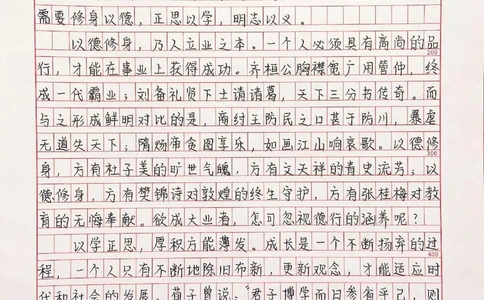 需要修身以德，正思以学，明志以义。
以德修身，乃人立业之本。一个人必须具有高尚的品
200
行，才能在事业上获得成功。齐桓公胸襟宽广用管仲，终
成一代霸业；刘备礼贤下士请诸葛，天下三分书传奇。而
与之形成鲜明对比的是，商纣王防民之口甚于防川，暴虐
无道失天下；隋炀帝贪图享乐，如画江山响哀歌。以德修
300
身，方有杜子美的旷世气魄，方有文天祥的青史流芳；以
德修身，方有樊锦诗对敦煌的终生守护，方有张桂梅对教
育的无悔奉献。欲成大业者，怎可忽视德行的涵养呢？
以学正思，厚积方能薄发。成长是一个不断扬弃的过
400
程，一个人只有不断地除旧布新，更新观念，才能适应时
代和社会的发展。荀子曾说：“君子博学而日参省乎己，则